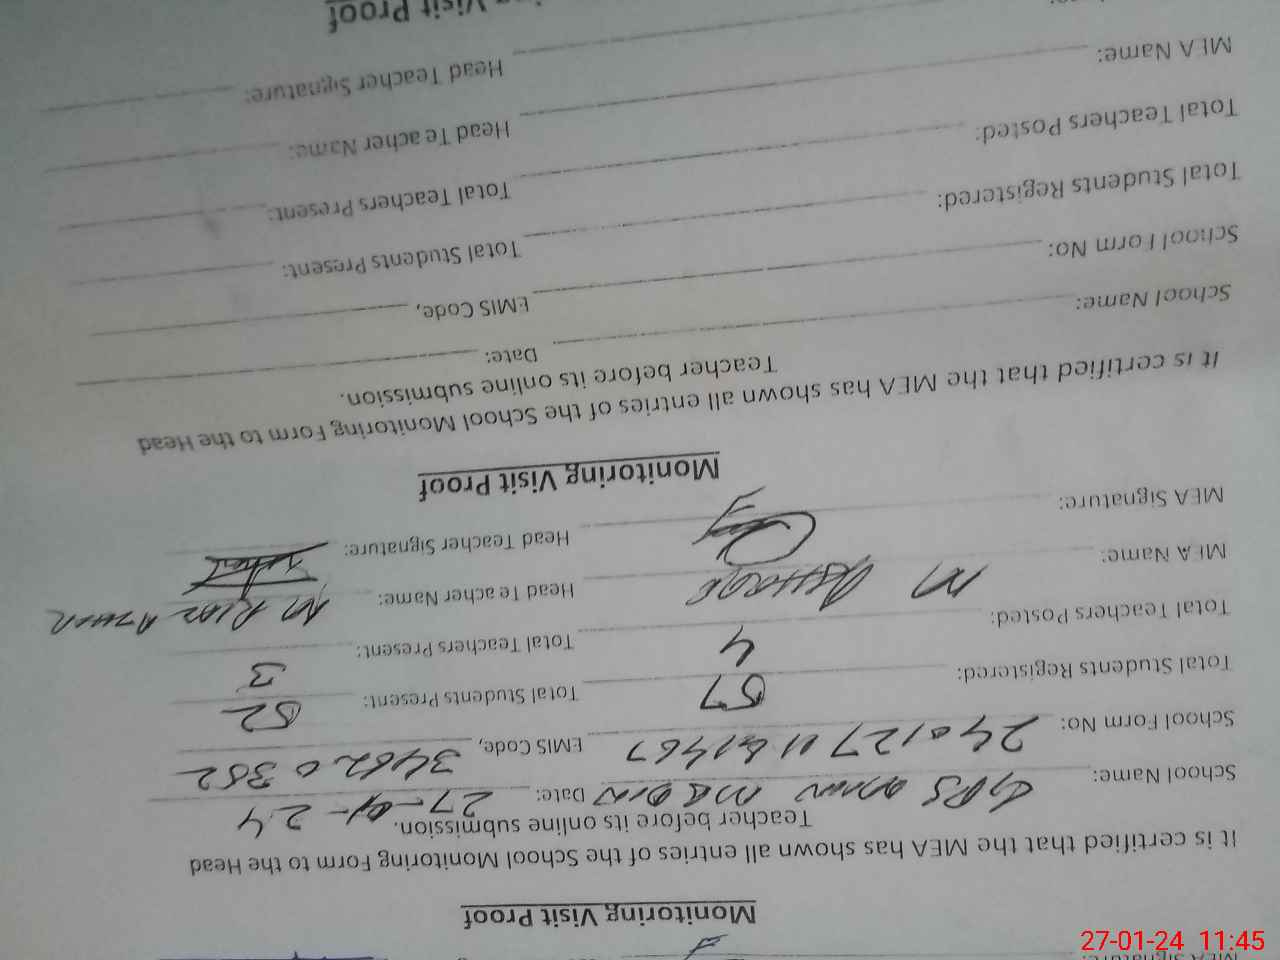 MEA Signature:
Monitoring Visit Proof
It is certified that the MEA has shown all entries of the School Monitoring Form to the Head
Teacher before its online submission.
School Name: GPS Date: 27-01-24
School Form No: EMIS Code, 34620352
Total Students Registered: 57 Total Students Present: 52
Total Teachers Posted: 4 Total Teachers Present: 3
MEA Name: M Head Teacher Name: M RIAZ AZHER
MEA Signature: Head Teacher Signature:
Monitoring Visit Proof
It is certified that the MEA has shown all entries of the School Monitoring Form to the Head
Teacher before its online submission.
School Name: Date:
School Form No: EMIS Code,
Total Students Registered: Total Students Present:
Total Teachers Posted: Total Teachers Present:
MEA Name: Head Teacher Name:
Head Teacher Signature:
Visit Proof
27-01-24 11:45